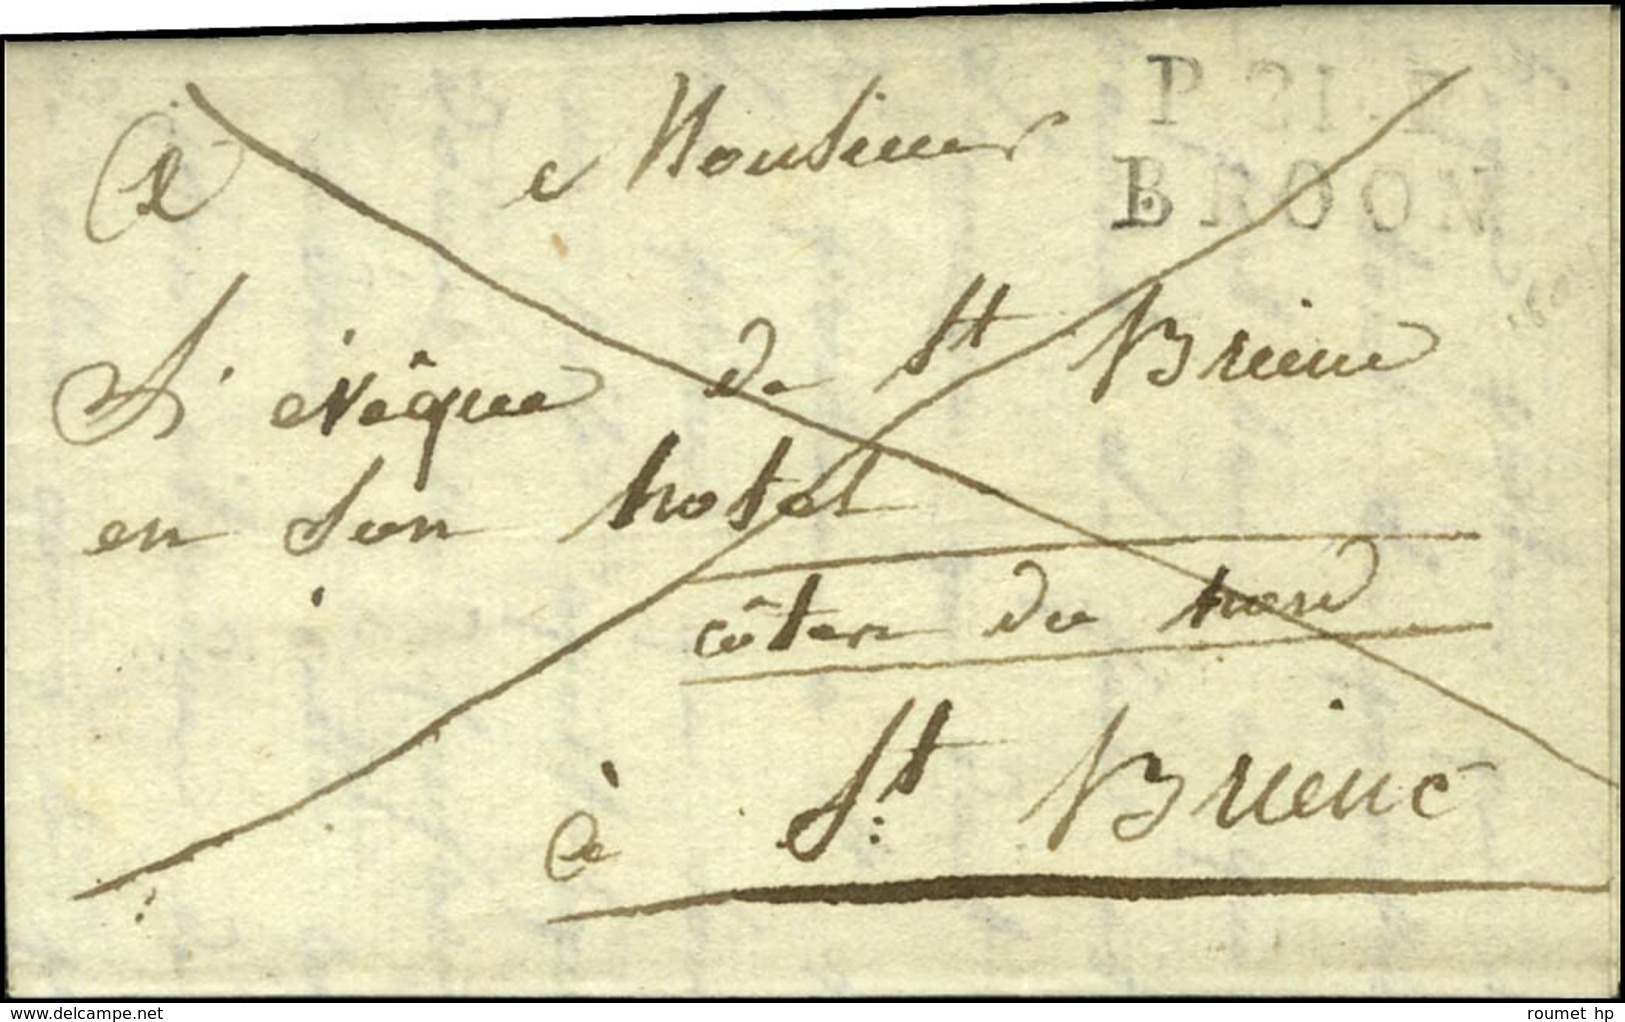 P. 21. P
BROON
A Monsieur
L'évêque de St Brieuc
en son hotel
côtes du nord
à St: Brieuc
delcampe.net
roumet hp